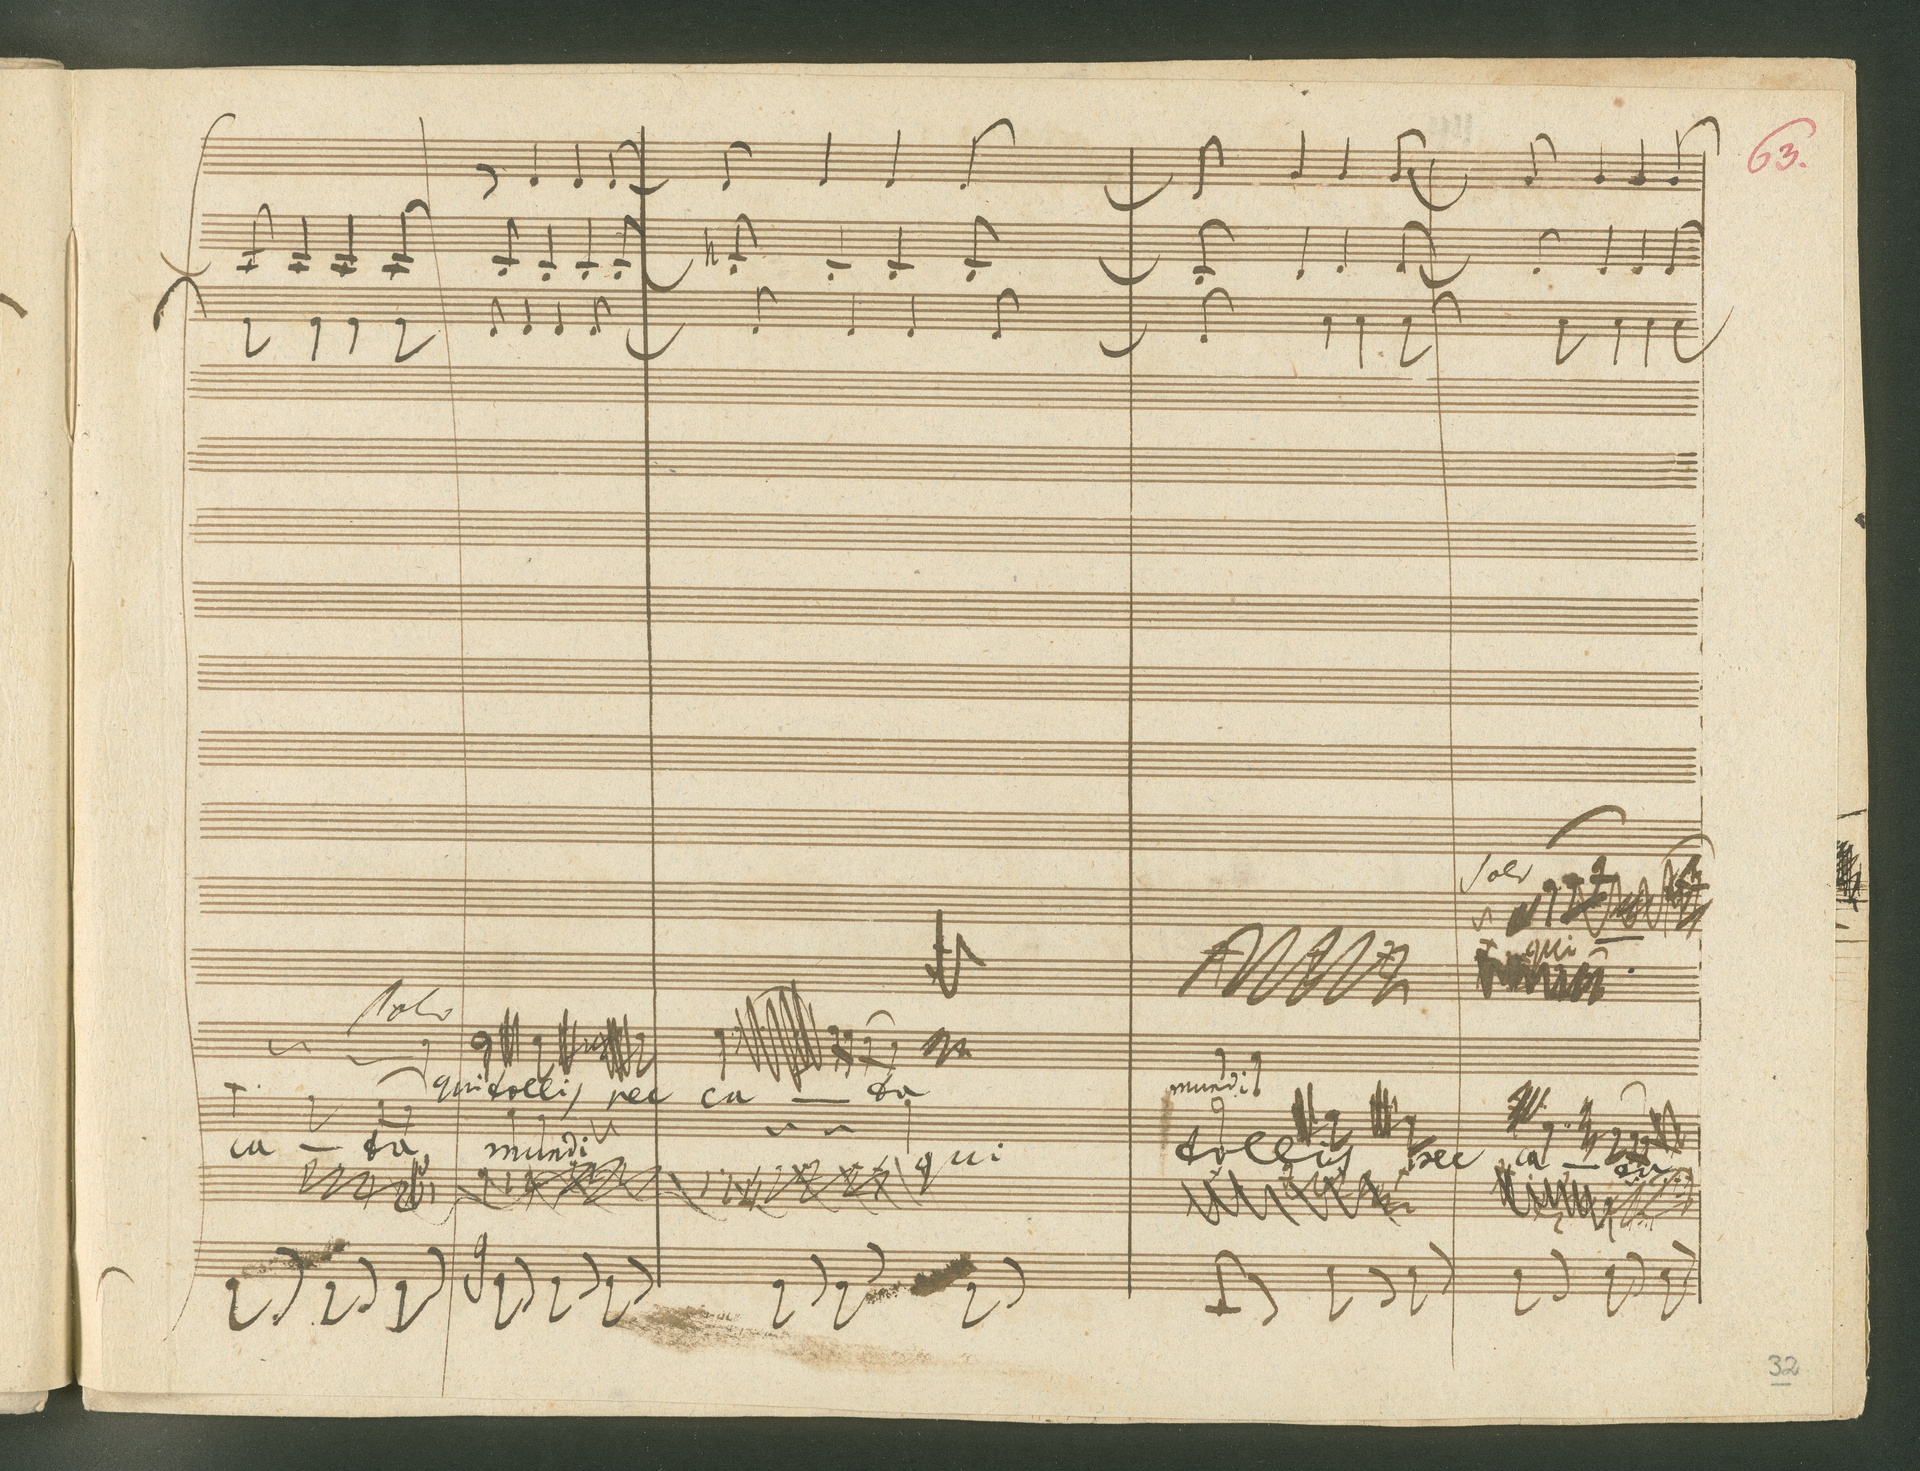 63.
Solo
qui
Solo
qui tollis pec ca — ta
mundi
ca — ta mundi qui tollis pec ca — ta
32